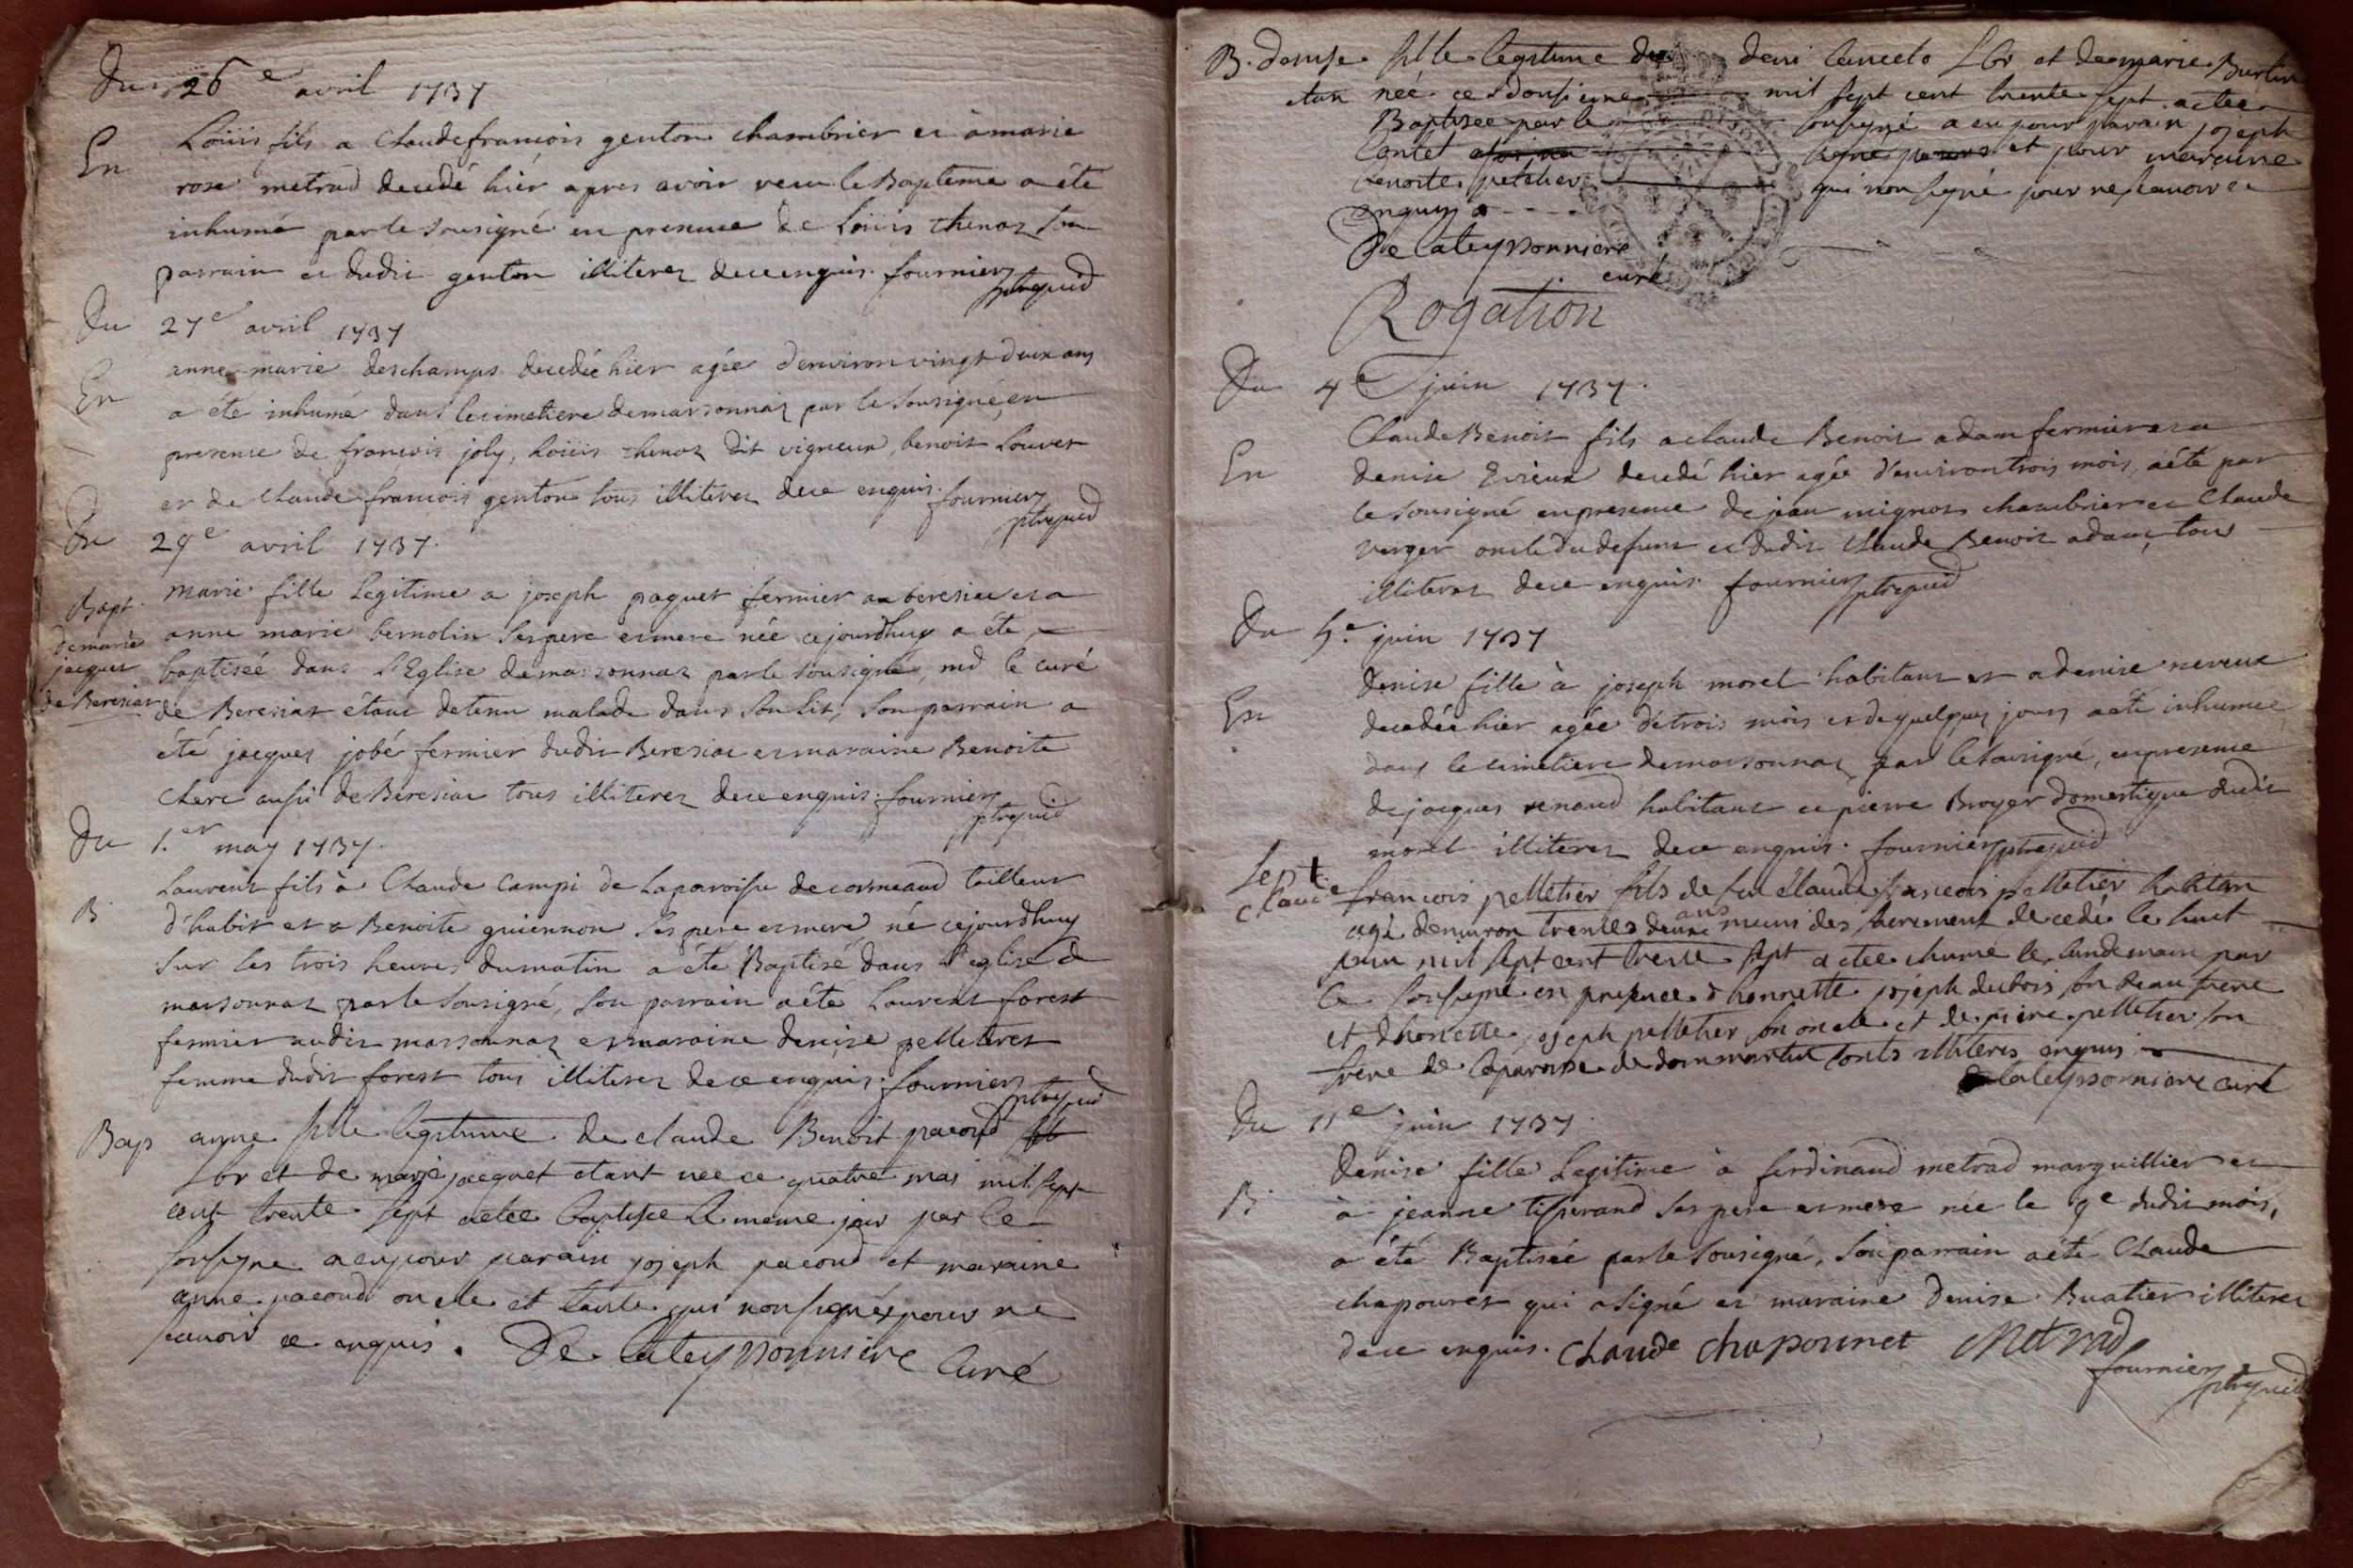 Du 26e avril 1737
En Loüis fils a Claude francois genton chambrier et à marie
rose metrad decedé hier apres avoir receu le Bapteme a été
inhumé par le sousigné en presence de Loüis thenoz son
parrain et dudit genton illiterez de ce enquis. fournier
ptrequid
Du 27e avril 1737
En anne marie deschamps decedée hier agée d'environ vingt deux ans
a été inhumé dans le cimetiere de marsonnaz par le sousigné, en
presence de francois joly, Loüis thenoz dit vigneux, benoit Louvet
et de Claude francois genton tous illiterez de ce enquis. fournier
ptrequid
Du 29e avril 1737.
Bapt. de marie jacquet de Beresiat
marie fille Legitime a joseph paquet fermier a beresiat et a
anne marie bernolin ses pere et mere née cejourdhuy a été
baptiseé dans L'Eglise de marsonnaz par le sousigné, mr le curé
de Beresiat étant detenu malade dans son Lit, son parrain a
été jacques jobé fermier dudit Beresiat et maraine Benoite
Clerc aussi de Beresiat tous illiterez de ce enquis. fournier
ptrequid
Du 1.er may 1737.
B Laurent fils à Claude Campi de La paroisse de cormeaud tailleur
d'habit et a Benoite guiennon ses pere et mere né cejourdhuy
sur les trois heures du matin a été Baptisé dans l'eglise de
marsonnaz par le sousigné, son parrain a été Laurent forest
fermier audit marsonnaz et maraine denise pelletier
femme dudit forest tous illiterez de ce enquis. fournier
ptrequid
Bap anne fille legitime de claude Benoit pacoud
Lbr et de marie jacquet etant nee ce quatre mai mil sept
cent trente sept a etee baptisee le meme jour par le
sousigne a eu pour parain joseph pacoud et maraine
anne pacoud oncle et tante qui non signéz pour ne
scavoir ce enquis. De Lateyssonniere Curé
B. denise fille legitime de deni Lbr et de marie Burlin
etan née ce dousieme mil sept cent trente sept a etee
Baptisee par le sousigné a eu pour parain joseph
et pour maraine
benoite peletier qui non signé pour ne scavoir
enquis
De Lateyssonniere
curé
Rogation
Du 4e juin 1737.
En Claude Benoit fils a claude Benoit adam fermier et a
denise decedé hier agée d'environ trois mois, a été par
le sousigné en presence de jean mignot chambrier et Claude
verger oncle du defunt et dudit Claude Benoit adam, tous
illiterez de ce enquis. fournier ptrequid
Du 5.e juin 1737
En denise fille à joseph morel habitant et a denise neveux
decedée hier agée de trois mois et de quelques jours a été inhumee
dans le cimetiere de marsonnaz par le sousigné, en presence
de jacques renaud habitant et pierre Broyer domestique dudit
morel illiterez de ce enquis. fournier ptrequid
Sept.e Claude francois pelletier fils de feu Claude francois pelletier habitan
agé denviron trentes deux ans muni des sacrement decedé le huit
juin mil sept cent trente sept a etee inhumé le lendemain par
le sousigné en presence d honnette joseph dubois son beau frere
et d honette joseph pelletier son oncle et de piere pelletier son
frere de la paroisse de dommartin touts illiteres enquis
De Lateyssonniere curé
Du 11e juin 1737.
B. denise fille Legitime à ferdinand metrad marguillier et
à jeanne tisserand ses pere et mere née le 9e dudit mois,
a été Baptisée par le sousigné, son parrain a été Claude
chapounet qui a signé et maraine denise Buatier illiteree
de ce enquis. Claude chapounet Metrad
fournier
ptrequid